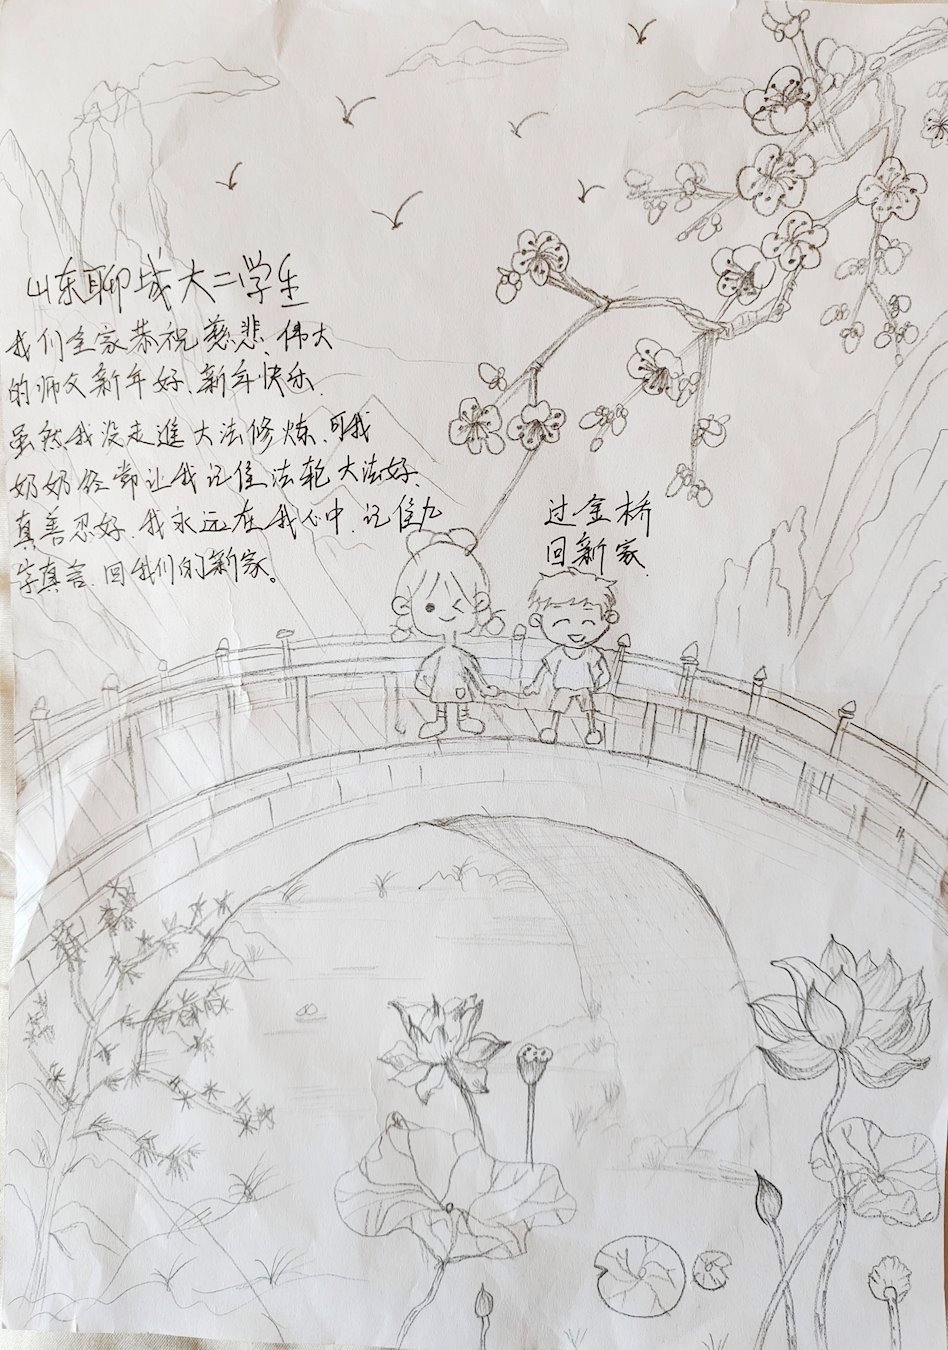 山东聊城大二学生
我们全家恭祝慈悲、伟大
的师父新年好、新年快乐.
虽然我没走進大法修炼、可我
奶奶经常让我记住法轮大法好、
真善忍好、我永远在我心中、记住九
字真言、回我们的新家。
过金桥
回新家.